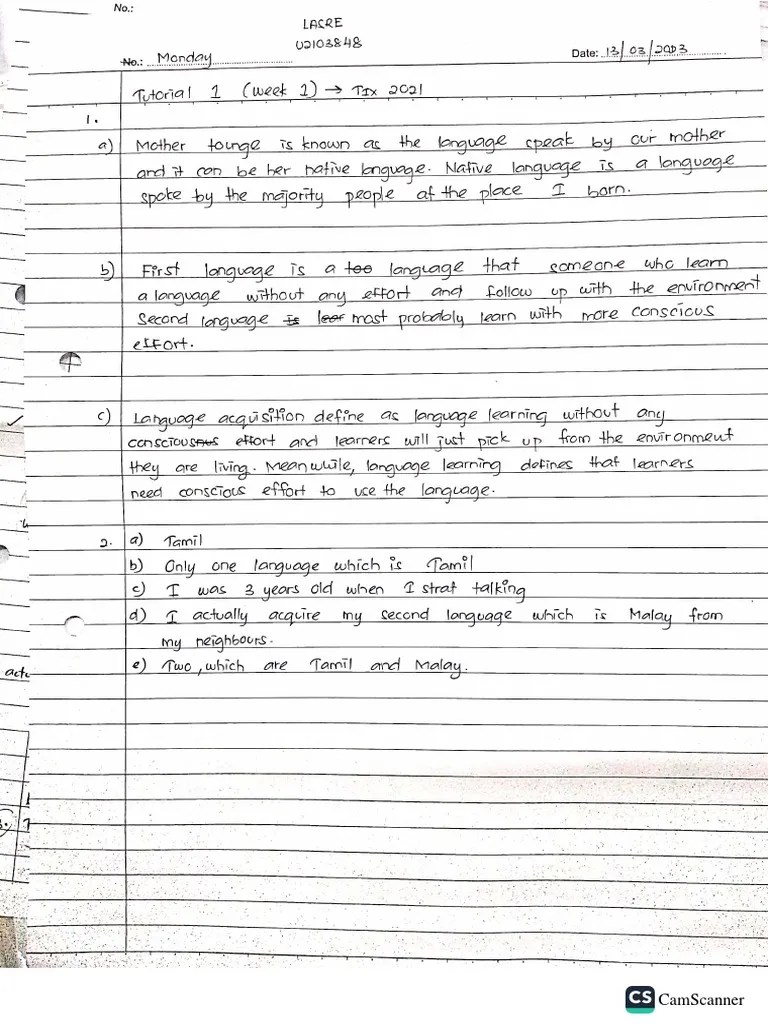 No.:
LACRE
U2103848
No.: Monday
Date: 13/03/2023
Tutorial 1 (week 1) → TIX 2021
1.
a) Mother tounge is known as the language speak by our mother
and it can be her native language. Native language is a language
spoke by the majority people at the place I born.
b) First language is a too language that someone who learn
a language without any effort and follow up with the environment
Second language is lear most probably learn with more conscious
effort.
c) Language acquisition define as language learning without any
consciousnus effort and learners will just pick up from the environment
they are living. Meanwhile, language learning defines that learners
need conscious effort to use the language.
2. a) Tamil
b) Only one language which is Tamil
c) I was 3 years old when I strat talking
d) I actually acquire my second language which is Malay from
my neighbours.
e) Two, which are Tamil and Malay.
actu
CS CamScanner